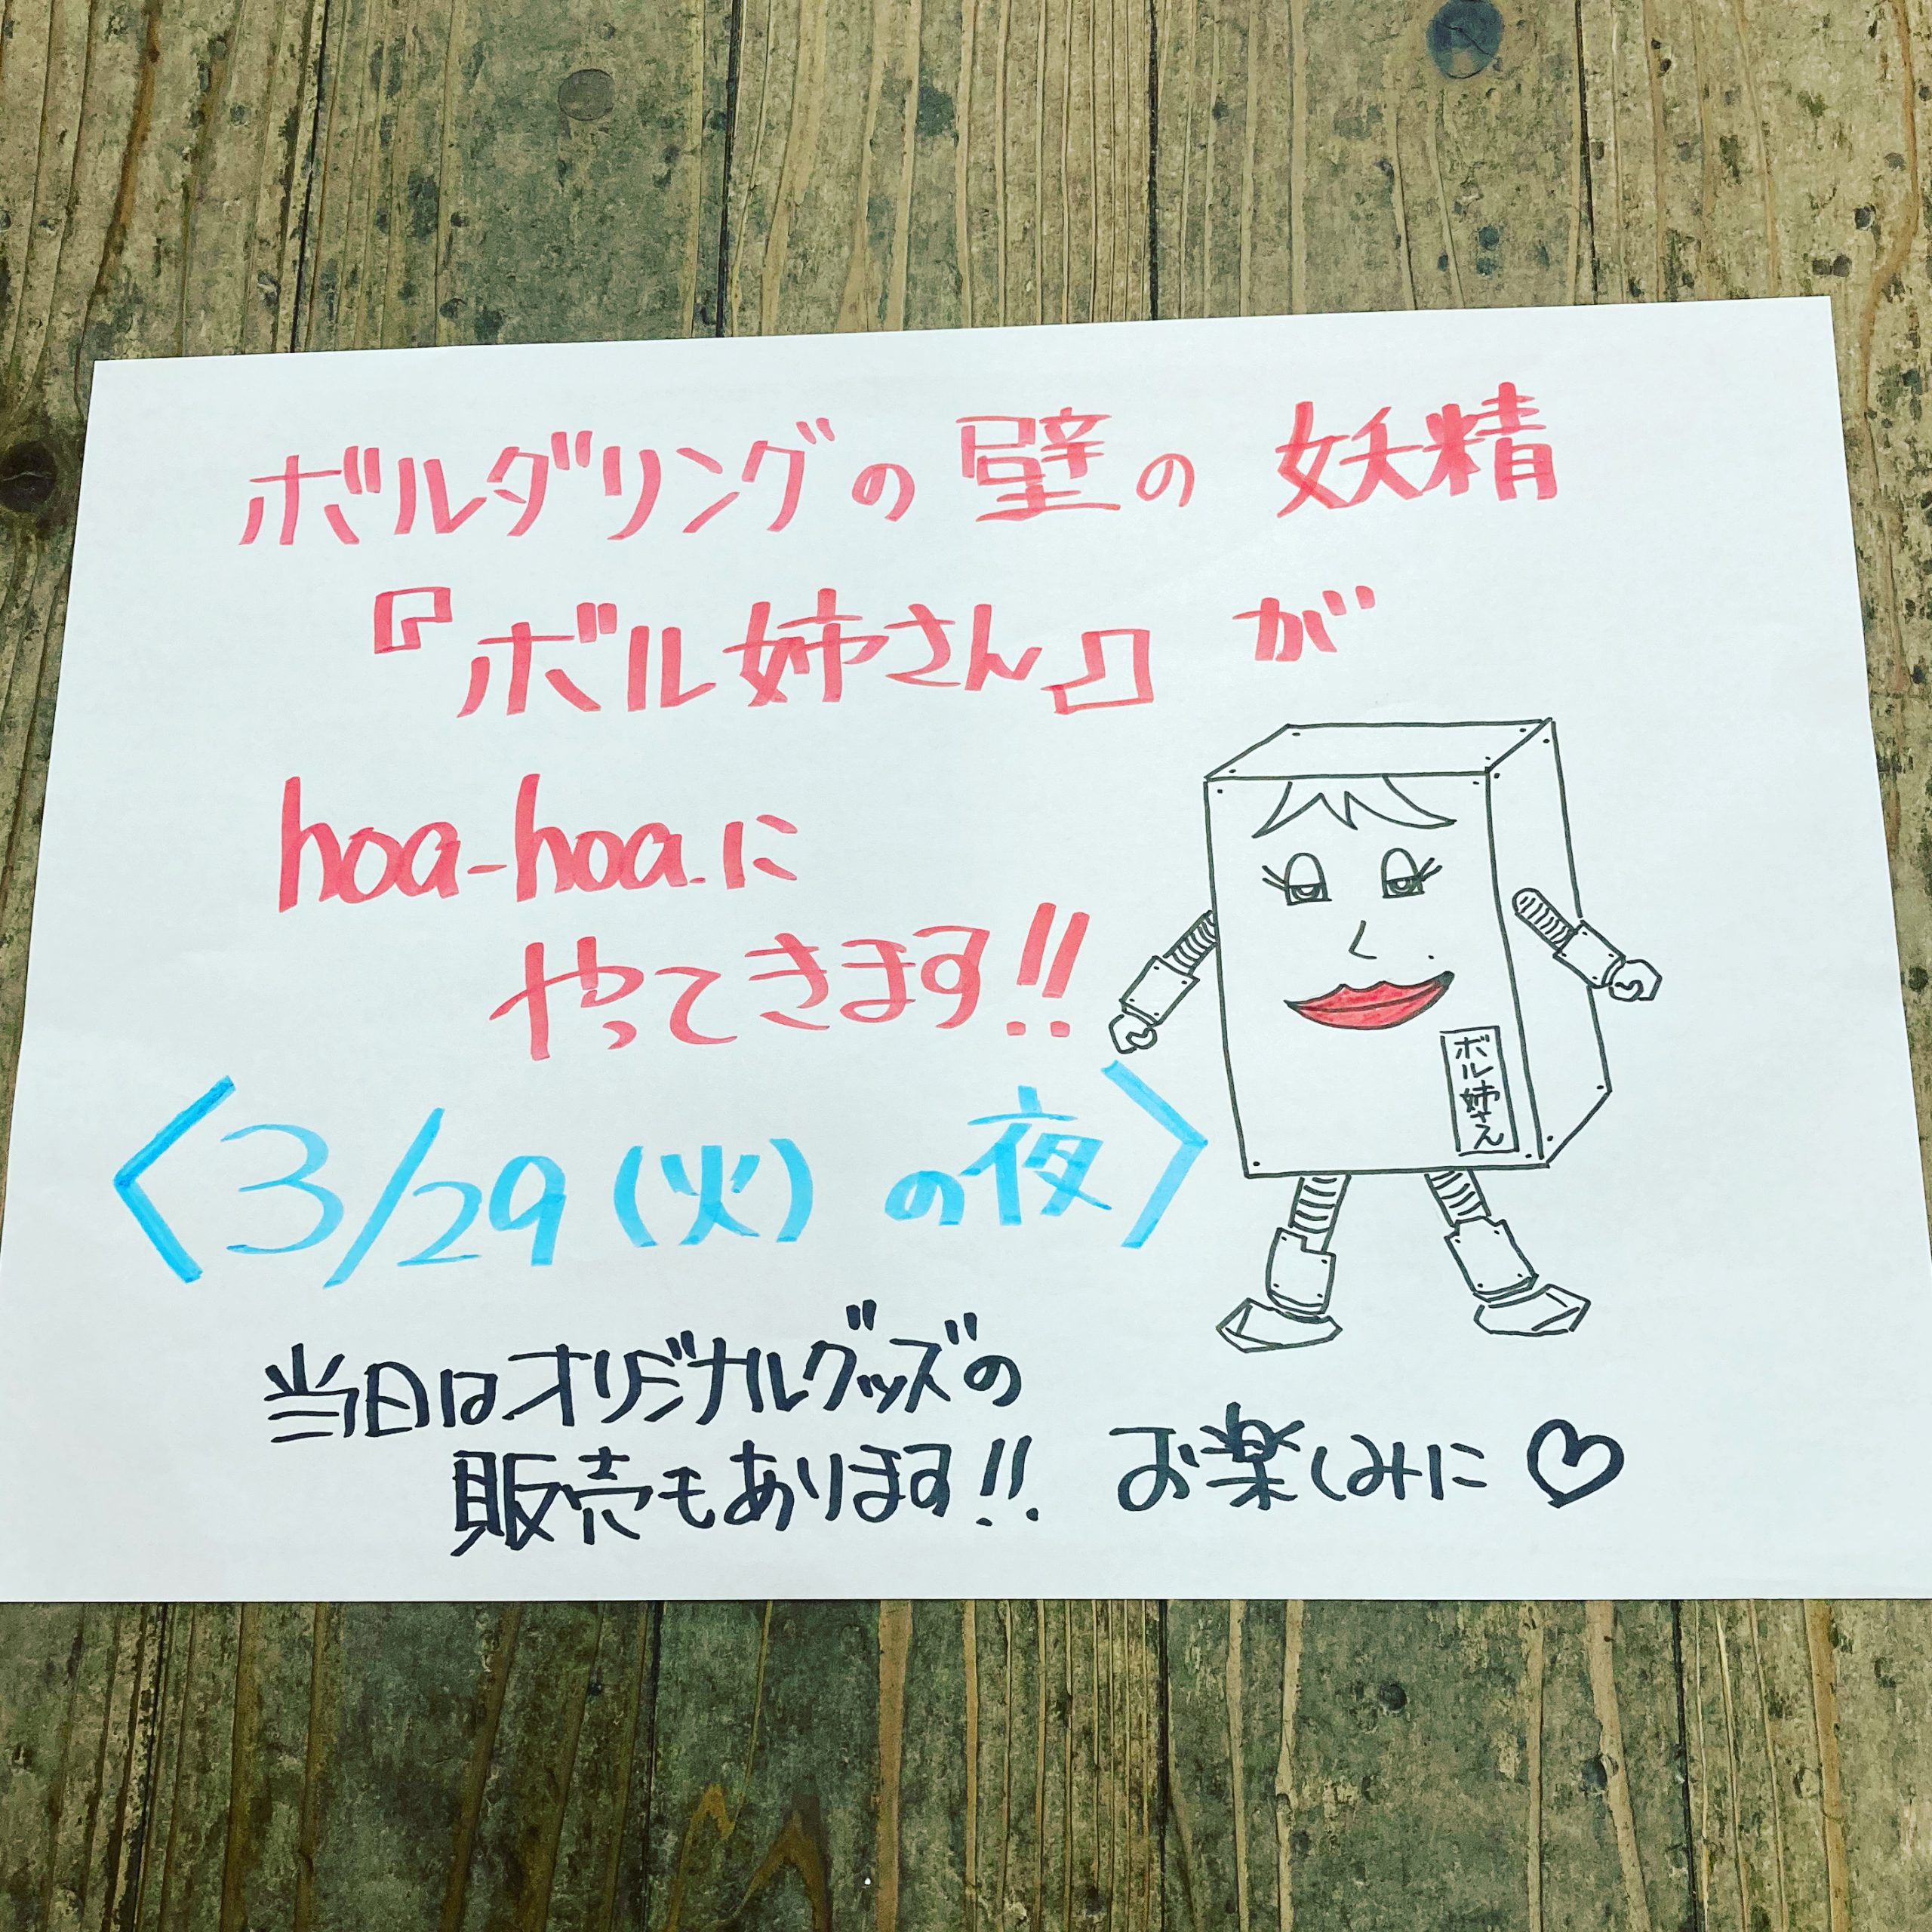 ボルダリングの壁の妖精
『ボル姉さん』が
hoa-hoaに
やってきます!!
〈3/29(火)の夜〉
ボル姉さん
当日はオリジナルグッズの
販売もあります!! お楽しみに♡